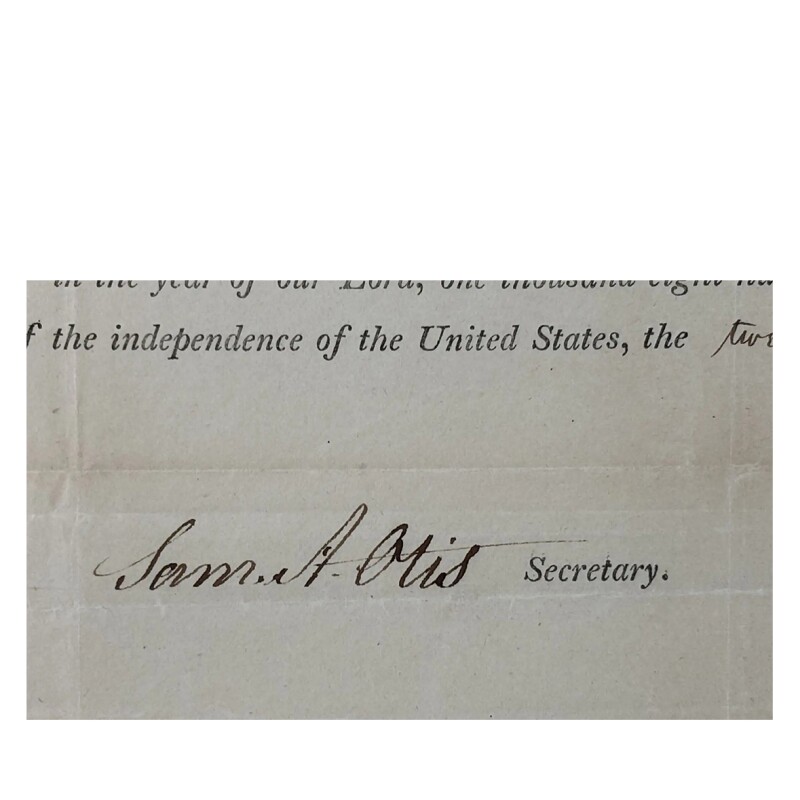 in the year of our Lord, one thousand eight
f the independence of the United States, the
Sam. A. Otis Secretary.